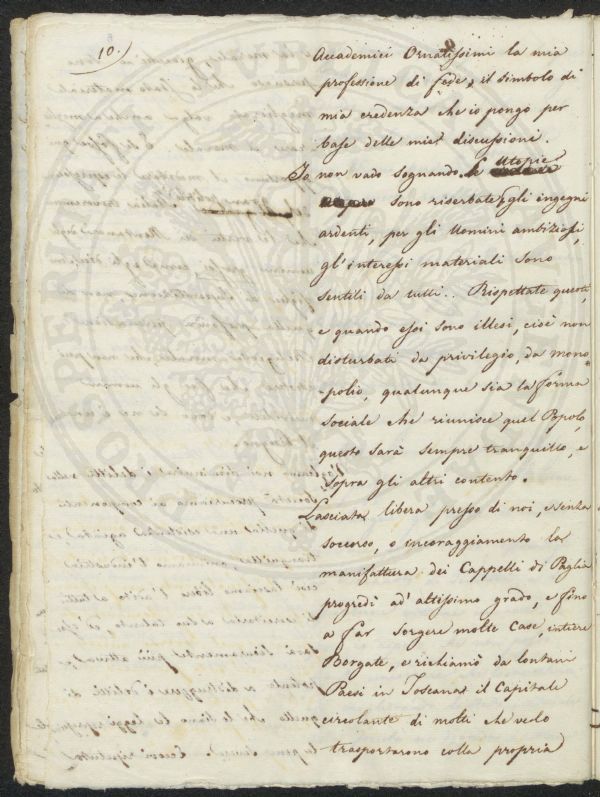 10.
Accademici Ornatissimi la mia
professione di fede, il simbolo di
mia credenza che io pongo per
base delle mie discussioni.
Io non vado sognando, le Utopie
sono riserbate agli ingegni
ardenti, per gli Uomini ambiziosi,
gl'interessi materiali sono
sentiti da tutti.. Rispettate questi,
e quando essi sono illesi, cioè non
disturbati da privilegio, da mono-
-polio, qualunque sia la forma
sociale che riunisce quel Popolo,
questo sarà sempre tranquillo, e
sopra gli altri contento.
Lasciata libera presso di noi, e senza
soccorso, o incoraggiamento la
manifattura dei Cappelli di Paglia
progredì ad altissimo grado, e fino
a far sorgere molte Case, intiere
Borgate, e richiamò da lontani
Paesi in Toscana il Capitale
circolante di molti che vi lo
trasportarono colla propria